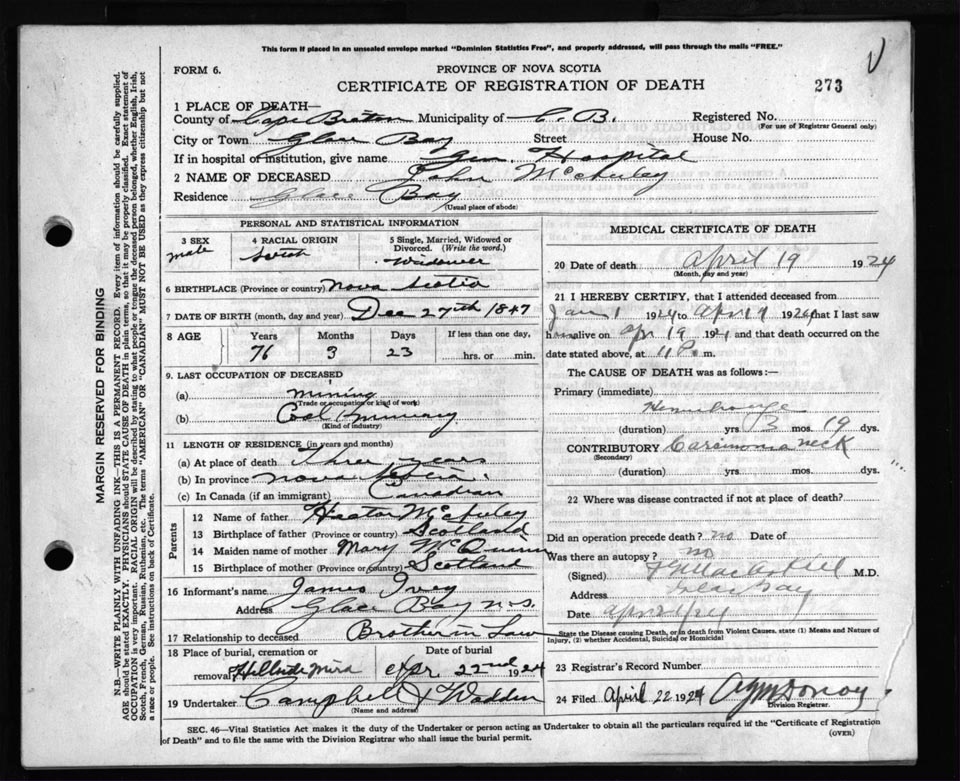 This form if placed in an unsealed envelope marked "Dominion Statistics Free", and properly addressed, will pass through the mails "FREE."
V
FORM 6.
PROVINCE OF NOVA SCOTIA
CERTIFICATE OF REGISTRATION OF DEATH
273
1 PLACE OF DEATH—
County of Cape Breton Municipality of C. B. Registered No.
(For use of Registrar General only)
City or Town Glace Bay Street House No.
If in hospital or institution, give name Gen. Hospital
2 NAME OF DECEASED John McAuley
Residence Glace Bay
(Usual place of abode)
PERSONAL AND STATISTICAL INFORMATION
3 SEX male
4 RACIAL ORIGIN Scotch
5 Single, Married, Widowed or Divorced. (Write the word.) Widower
6 BIRTHPLACE (Province or country) Nova Scotia
7 DATE OF BIRTH (month, day and year) Dec 27th 1847
8 AGE Years Months Days If less than one day,
76 3 23 hrs. or min.
9. LAST OCCUPATION OF DECEASED
(a) mining
Trade or occupation or kind of work)
(b) Coal mining
(Kind of industry)
11 LENGTH OF RESIDENCE (in years and months)
(a) At place of death Three years
(b) In province nova
(c) In Canada (if an immigrant) Canadian
Parents
12 Name of father Hector McAuley
13 Birthplace (Province or country) Scotland
14 Maiden name of mother Mary McQuinn
15 Birthplace of mother (Province or country) Scotland
16 Informant's name James Ivey
Address Glace Bay N.S.
17 Relationship to deceased Brother in Law
18 Place of burial, cremation or removal Mira
Date of burial Apr. 22nd 1924
19 Undertaker Campbell & Wadden
(Name and address)
MEDICAL CERTIFICATE OF DEATH
20 Date of death April 19 1924
(Month, day and year)
21 I HEREBY CERTIFY, that I attended deceased from
Jan 1 1924 to April 19 1924 that I last saw
him alive on Apr 19 1924 and that death occurred on
date stated above, at 11 P. m.
The CAUSE OF DEATH was as follows:—
Primary (immediate)
Hemorrhage
(duration) yrs 3 mos. 19 dys.
CONTRIBUTORY Carcinoma neck
(Secondary)
(duration) yrs. mos. dys.
22 Where was disease contracted if not at place of death?
Did an operation precede death? no Date of
Was there an autopsy? no
(Signed) M.D.
Address Glace Bay
Date
State the Disease causing Death, or in death from Violent Causes, state (1) Means and Nature of Injury, (2) whether Accidental, Suicidal or Homicidal
23 Registrar's Record Number
24 Filed April 22 1924
Division Registrar.
SEC. 46—Vital Statistics Act makes it the duty of the Undertaker or person acting as Undertaker to obtain all the particulars required in the "Certificate of Registration
of Death" and to file the same with the Division Registrar who shall issue the burial permit.
(OVER)
MARGIN RESERVED FOR BINDING
N.B.—WRITE PLAINLY WITH UNFADING INK—THIS IS A PERMANENT RECORD. Every item of information should be carefully supplied.
AGE should be stated EXACTLY. PHYSICIANS should STATE CAUSE OF DEATH in plain terms, so that it may be properly classified. Exact statement of
OCCUPATION is very important. RACIAL ORIGIN will be described by stating to what people or tongue the deceased person belonged, whether English, Irish,
Scotch, French, German, Russian, Ruthenian, etc. The terms "AMERICAN" or "CANADIAN" MUST NOT BE USED as they express citizenship but not
a race or people. See instructions on back of Certificate.